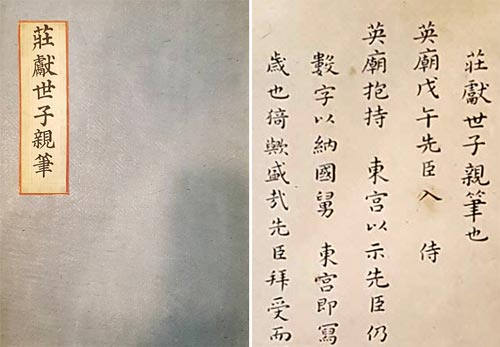 莊獻世子親筆
莊獻世子親筆也
英廟戊午先臣入 侍
英廟抱持 東宮以示先臣仍
數字以納國舅 東宮即寫
歲也猗歟盛哉先臣拜受而